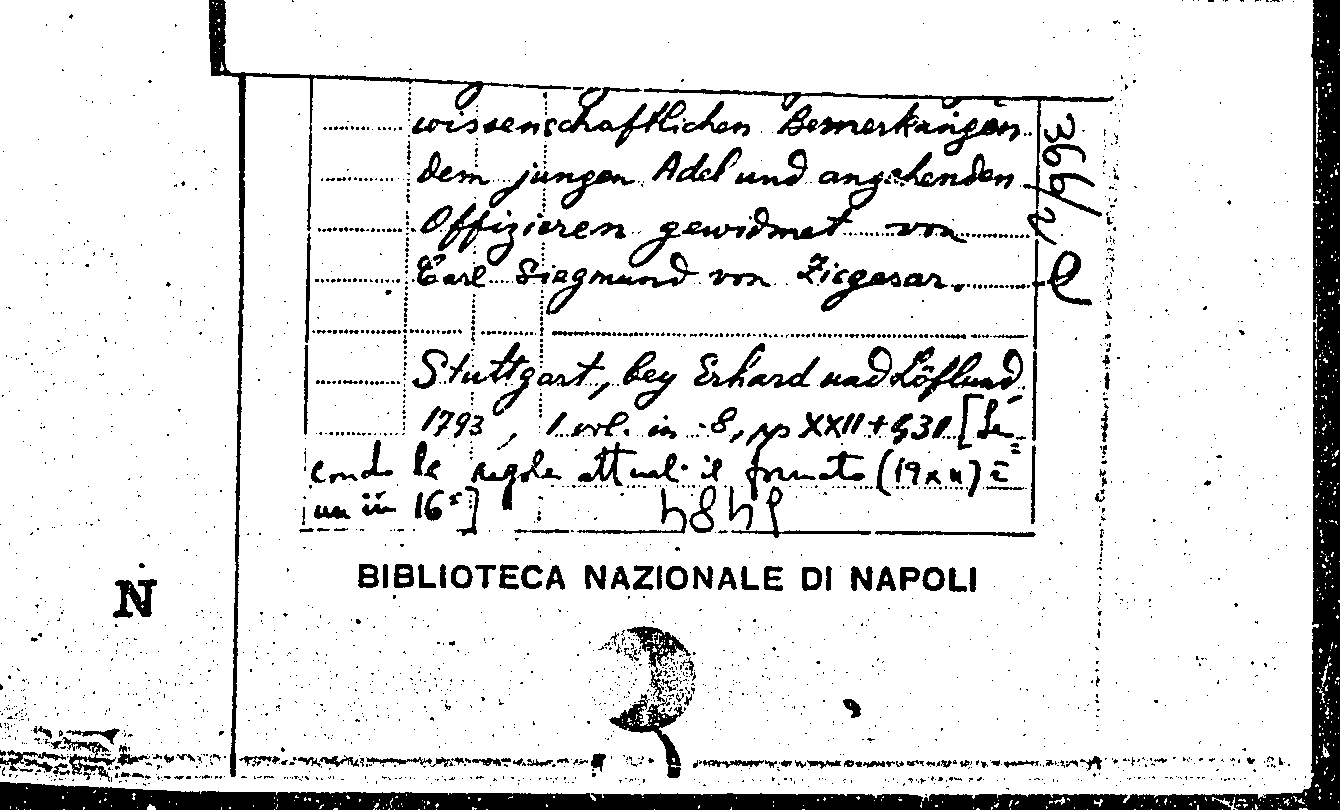 wissenschaftlichen Bemerkungen
dem jungen Adel und angehenden
Offizieren gewidmet von
Carl Siegmund von Ziegesar.
Stuttgart, bey Erhard und Löflund,
1793, 1 vol. in -8, pp XXII + 530 [Se=
condo le regole attuali il formato (19x11) è
un in 16°]
366/2
BIBLIOTECA NAZIONALE DI NAPOLI
N